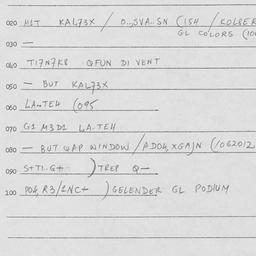 020 HLT KAL73X / D..,SVA..SN (154 / KOLBER
GL COLORS (10
030 —
040 TI7N7K8 QFUN DI VENT
050 — BUT KAL73X
060 LA..TE4 (095
070 G1 M3D1 LA..TE4
080 — BUT WAP WINDOW / ADO4,XGAJN (/062012
090 S+TI..G+ ) TREP Q—
100 PO4,R3/1NC+ ) GELENDER GL PODIUM